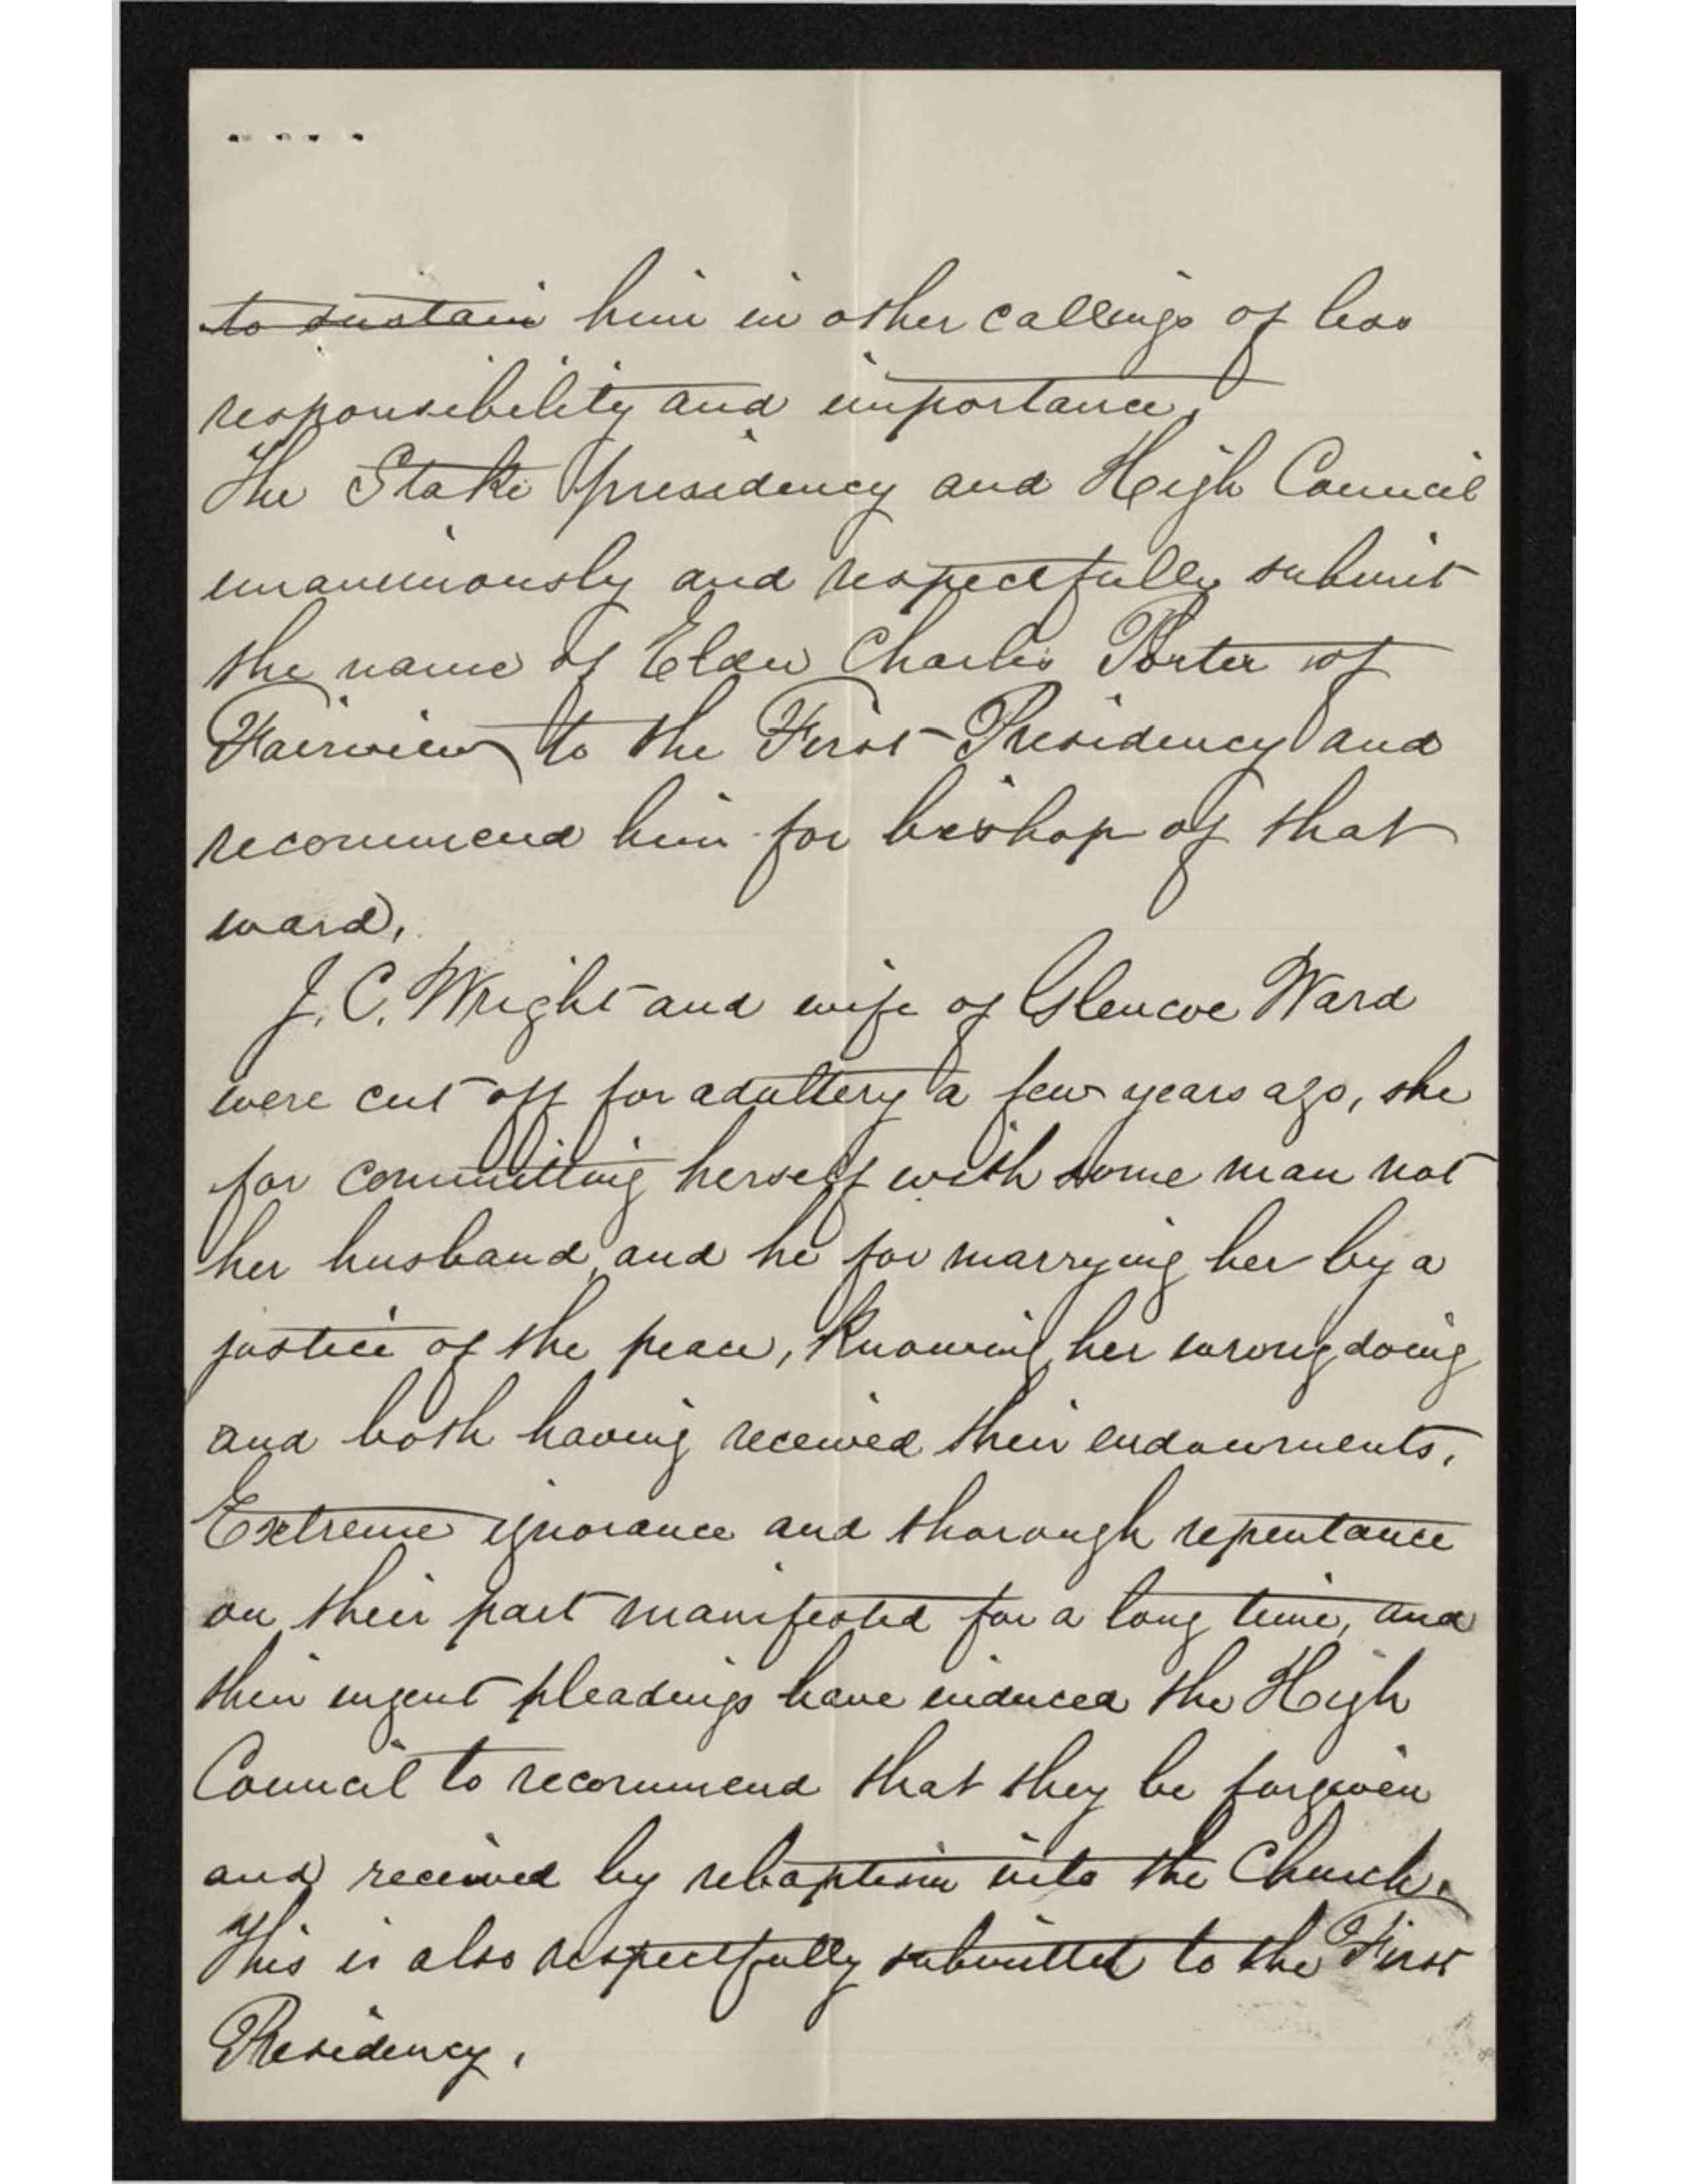 to sustain him in other callings of less
responsibility and importance.
The Stake presidency and High Council
unanimously and respectfully submit
the name of Elder Charles Porter of
Fairview to the First Presidency and
recommend him for bishop of that
ward.
J. C. Wright and wife of Glencoe Ward
were cut off for adultery a few years ago, she
for committing herself with some man not
her husband, and he for marrying her by a
justice of the peace, knowing her wrong doing
and both having received their endowments.
Extreme ignorance and thorough repentance
on their part manifested for a long time, and
their urgent pleadings have induced the High
Council to recommend that they be forgiven
and received by rebaptism into the Church.
This is also respectfully submitted to the First
Presidency.